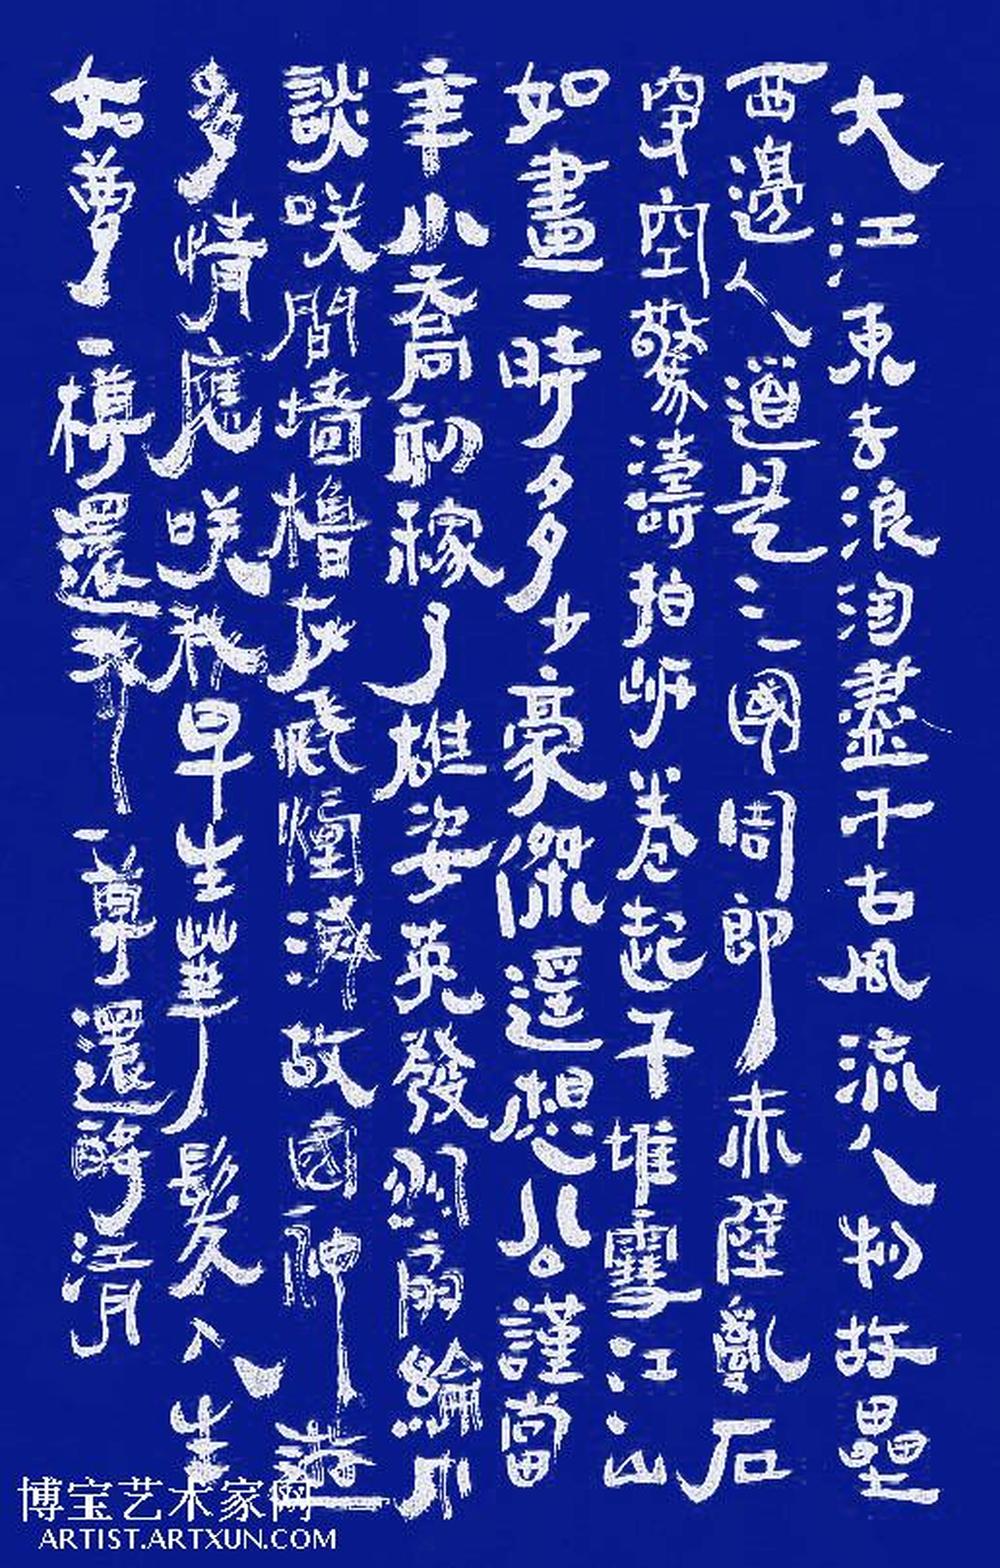 大江東去浪淘盡千古風流人物故壘
西邊人道是三國周郎赤壁亂石
穿空驚濤拍岸卷起千堆雪江山
如畫一時多少豪傑遥想公謹當
年小喬初稼了雄姿英發羽扇綸巾
談咲間墻櫓灰飛煙滅故國神遊
多情應咲我早生華髮人生
如夢一樽還酹一尊還酹江月
博宝艺术家网
ARTIST.ARTXUN.COM